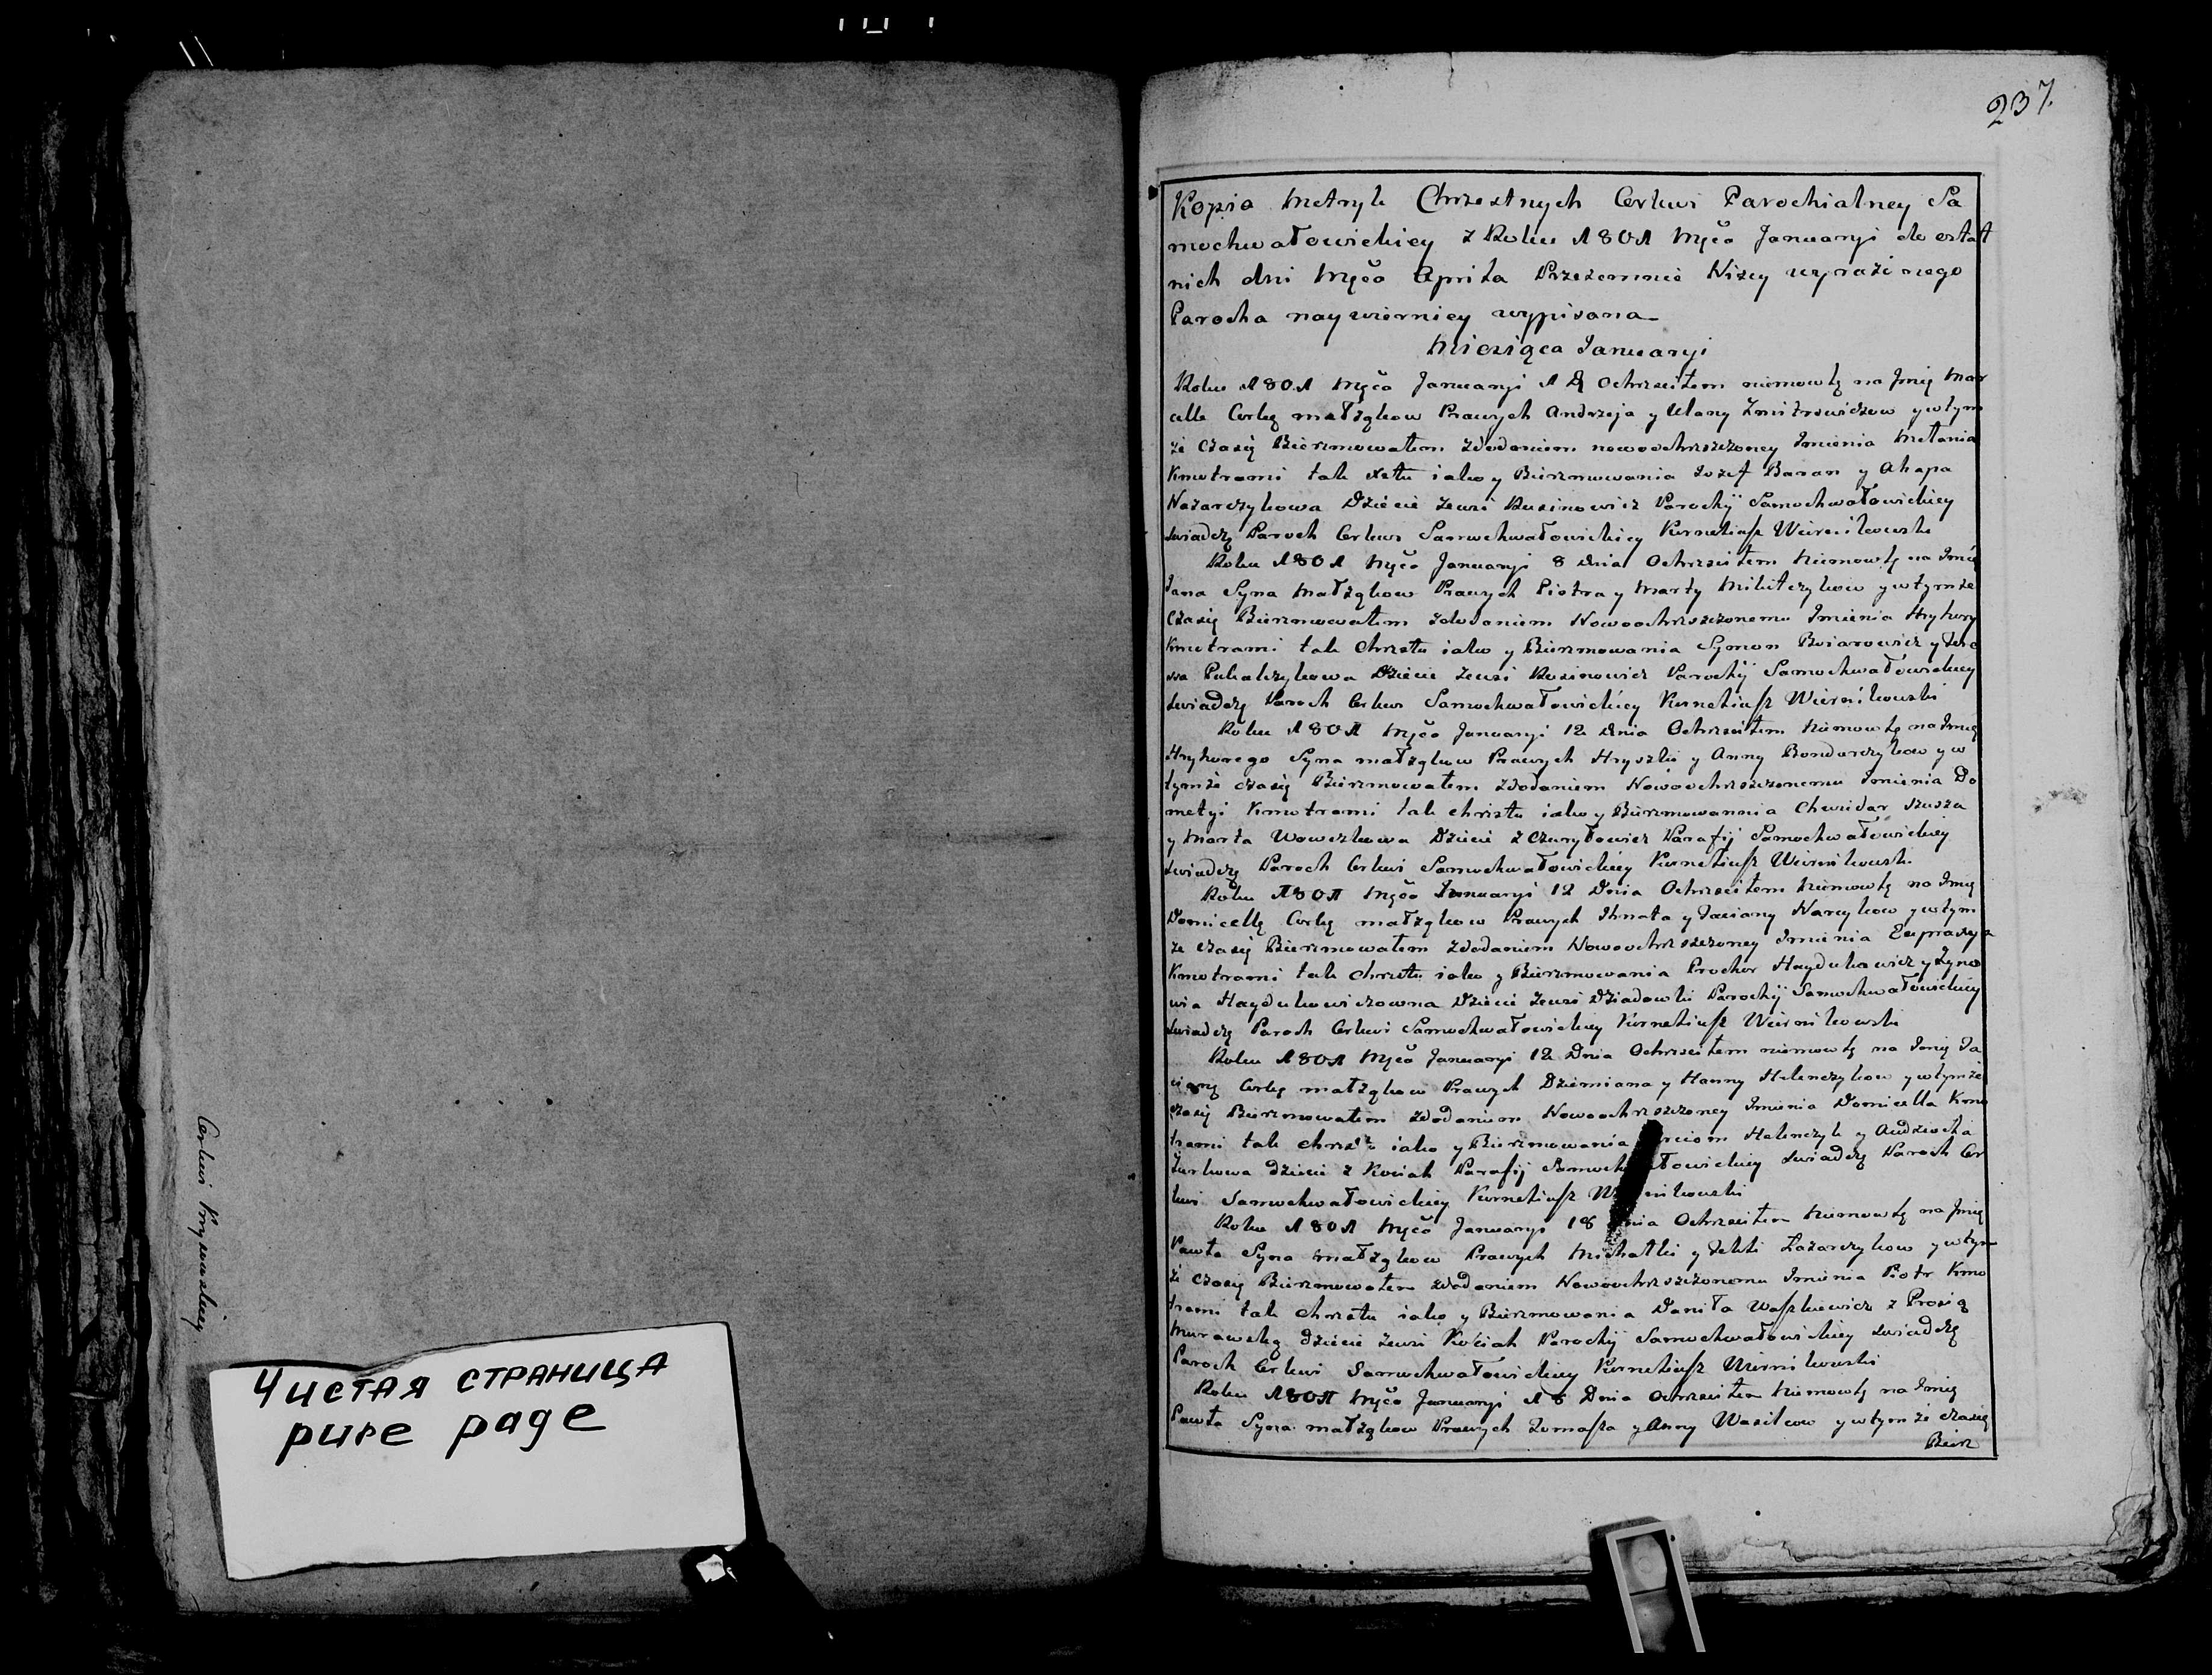 Cerkwi
Чистая страница
pure page
237.
Kopia Metryk Chrzestnych Cerkwi Parochialney Sa
mochwałowickiey z Roku 1801 Mçča Januaryi do ostat
nich dni Mçča Aprila Przezemnie Niżey wyrażonego
Parocha naywierniey wypisana
Miesiąca Januaryi
Roku 1801 Mçča Januaryi 1 D Ochrzcitem niemowlę na Jmię Mar
celle Corkę małżąkow Prawych Andrzeja y Ulany Zmitrowiczow y w tym
że czasię Bierzmowałem zdodaniem nowoochrzszczoney Jmienia Melania
Kmotrami tak xstu iako y Bierzmowania Jozef Baran y Ahapa
Nazarczykowa Dziecie zewsi Rusinowicz Parochÿ Samochwałowickiey
Swiadczę Paroch Cerkwi Samochwałowickiey Korneliusz Wiernikowski
Roku 1801 Mçča Januaryi 8 Dnia Ochrzcitem Niemowlę na Jmię
Jana Syna Małżąkow Prawych Piotra y Marty Mikitczykow y w tymże
Czasię Bierzmowałem zdodaniem Nowoochrzszczonemu Jmienia Hryhory
Kmotrami tak Chrztu iako y Bierzmowania Symon
Dziecie zewsi Rusinowicz Parochÿ Samochwałowickiey
Swiadczę Paroch Cerkwi Samochwałowickiey Korneliusz Wiernikowski
Roku 1801 Mçča Januaryi 12 Dnia Ochrzcitem Niemowlę na Jmię
Hryhorego Syna małżąkow Prawych Hryszki y Anny Bondarczykow y w
tymże czasię Bierzmowałem zdodaniem Nowoochrzszczonemu Jmienia Do
metyi Kmotrami tak chrztu iako y Bierzmowannia Chwiedar Szusza
y Marta Dziecie z Czuryłowicz Parafij Samochwałowickiey
Swiadczę Paroch Cerkwi Samochwałowickiey Korneliusz Wiernikowski
Roku 1801 Mçča Januaryi 12 Dnia Ochrzcitem Niemowlę na Jmię
Domicellę Corkę małżąkow Prawych Ihnata y Taciany y w tym
że czasię Bierzmowałem zdodaniem Nowoochrzszczoney Jmienia Eupraxya
Kmotrami tak Chrztu iako y Bierzmowania Prochor Haydukowicz y Zyno
wia Haydukowiczowna Dziecie zewsi Dziadowki Parochÿ Samochwałowickiey
Swiadczę Paroch Cerkwi Samochwałowickiey Korneliusz Wiernikowski
Roku 1801 Mçča Januaryi 12 Dnia Ochrzcitem niemowlę na Jmię Ta
cianę Corkę małżąkow Prawych Dziemiana y Hanny Halenczykow y w tymże
czasię Bierzmowałem zdodaniem Nowoochrzszczoney Jmienia Domicella Kmo
trami tak chrztu iako y Bierzmowania Halenczyk y Audziocha
Żurkowa dziecie z Kościak Parafij Swiadczę Paroch Cer
kwi Samochwałowickiey Korneliusz
Roku 1801 Mçča Januaryi 18 Dnia Ochrzcitem Niemowlę na Jmię
Pawła Syna małżąkow Prawych Michałki y Tekli Łazarczykow y w tym
że czasię Bierzmowałem zdodaniem Nowoochrzszczonemu Jmienia Piotr Kmo
trami tak chrztu iako y Bierzmowania Daniła Waszkiewicz z Prosią
Murawską dziecie zewsi Kościak Parochÿ Samochwałowickiey Swiadczę
Paroch Cerkwi Samochwałowickiey Korneliusz Wiernikowski
Roku 1801 Mçča Januaryi 18 Dnia Ochrzcitem Niemowlę na Jmię
Pawła Syna małżąkow Prawych Tomasza y Anny Wasilcow y w tymże czasię
Bierz